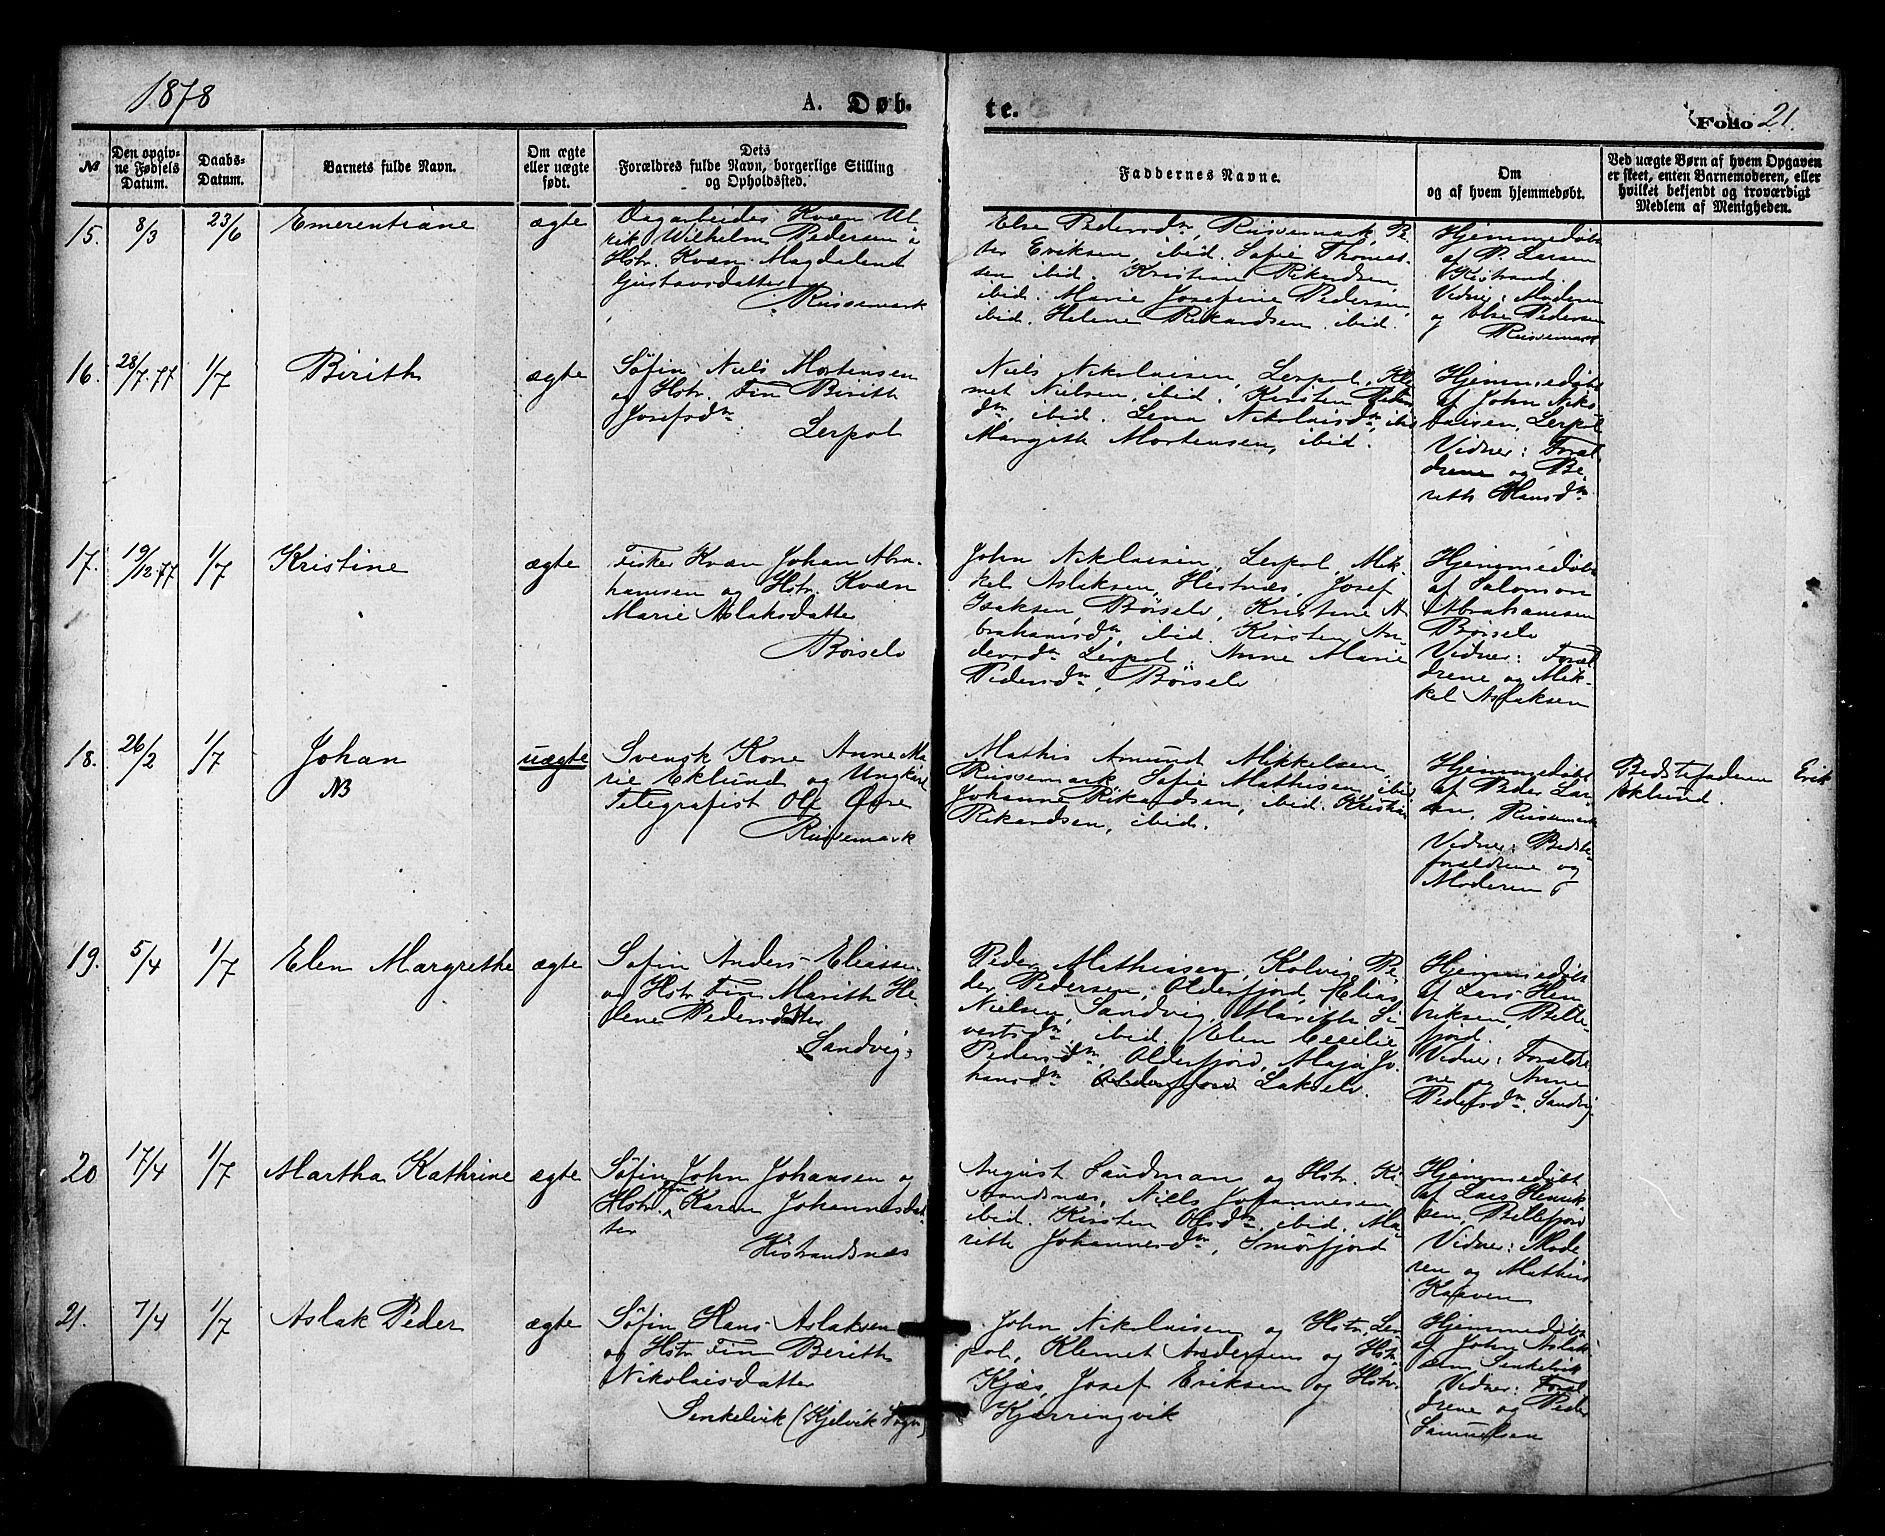 1878
A. Døb-
te.
Folio 21.
№
Den opgiv-
ne Fødsels
Datum.
Daabs-
Datum.
Barnets fulde Navn.
Om ægte
eller uægte
født.
Dets
Forældres fulde Navn, borgerlige Stilling
og Opholdssted.
Faddernes Navne.
Om
og af hvem hjemmedøbt.
Ved uægte Børn af hvem Opgaven
er skeet, enten Barnemoderen, eller
hvilket bekjendt og troværdigt
Medlem af Menigheden.
15.
8/3
23/6
Emerentiane
ægte
Dagarbeider Kvæn Ul-
rik Wilhelm Pedersen
Hstr. Kvæn Magdalena
Gustavsdatter
Russemark
Else Pedersdtr, Russemark, Pe-
ter Eriksen, ibid. Sofie Thomas-
sen ibid. Kristian Rikardsen,
ibid. Marie Josefine Pedersen,
ibid. Helene Rikardsen ibid.
Hjemmedøbt
af P. Larsen
Kistrand.
Vidner: Moderen
og Else Pedersen
Russemark
16.
28/7.77
1/7
Birith
ægte
Søfin Niels Mortensen
og Hstr. Fin Birith
Josefsdtr.
Lerpol
Niels Nikolaisen, Lerpol, Kle-
met Nielsen, ibid. Kirsten Peders
dtr, ibid. Lena Nikolaisdtr, ibid
Margith Mortensen, ibid.
Hjemmedøbt
af John Niko-
laisen, Lerpol
Vidner: Foræl-
drene og Be-
reth Hansdtr
17.
19/12.77
1/7
Kristine
ægte
Fisker Kvæn Johan Abra-
hamsen og Hstr. Kvæn
Marie Aslaksdatter
Børselv
John Niklaisen, Lerpol, Mik-
kel Aslaksen, Hestnæs, Josef
Isaksen, Børselv, Kristine A-
brahamsdtr, ibid. Kirsten An-
dersdtr Lerpol, Anne Marie
Pedersdtr, Børselv
Hjemmedøbt
af Salomon
Abrahamsen
Børselv
Vidner: Foræl-
drene og Mik-
kel Aslaksen
18.
26/2
1/7
Johan
NB
uægte
Svensk Kone Anne Ma-
rie Eklund og Ungkarl
Telegrafist Ole
Russemark
Mathis Amund Mikkelsen,
Russemark, Sofie Mathisen, ibid
Johanne Rikardsen, ibid. Kristian
Rikardsen, ibid.
Hjemmedøbt
af Peder Lar-
sen, Russemark
Vidner: Bedste-
forældrene og
Moderen
Bedstefaderen Erik
Eklund.
19.
5/4
1/7
Elen Margrethe
ægte
Søfin Anders Eliassen
og Hstr. Fin Marith He-
lene Pedersdatter
Sandvig.
Peder Mathiasen, Kolvig, Pe-
der Pedersen, Olderfjord, Elias
Nielsen, Sandvig, Marith Si-
vertsdtr. ibid. Elen Cecilie
Pedersdtr, Olderfjord, Maja Jo-
hansdtr Olderfjord Lakselv.
Hjemmedøbt
af Lars Hen-
riksen, Bille-
fjord.
Vidner: Forældre-
ne og Anne
Pedersdtr. Sandvig
20
17/4
1/7
Martha Kathrine
ægte
Søfin John Johansen og
Hstr. Fin Karen Johannesdat-
ter
Kistrandsnæs
August Sandman og Hstr. Ki-
strandsnæs, Niels Johannesen
ibid. Kirsten Olsdtr. ibid. Ma-
reth Johannesdtr, Smørfjord
Hjemmedøbt
af Lars Henrik-
sen, Billefjord
Vidner: Mode-
ren og Mathis
Kaaven
21.
7/4
1/7
Aslak Peder
ægte
Søfin Hans Aslaksen
og Hstr Fin Berith
Nikolaisdatter
Sinkelvik (Kjelvik Sogn)
John Nikolaisen og Hstr, Ler-
pol, Klemet Andersens og Hstr
Kjæs, Josef Eriksen og Hstr.
Kjærringvik
Hjemmedøbt
af John Aslak-
sen Sinkelvik
Vidner: Foræl-
drene og Peder
Samuelsen